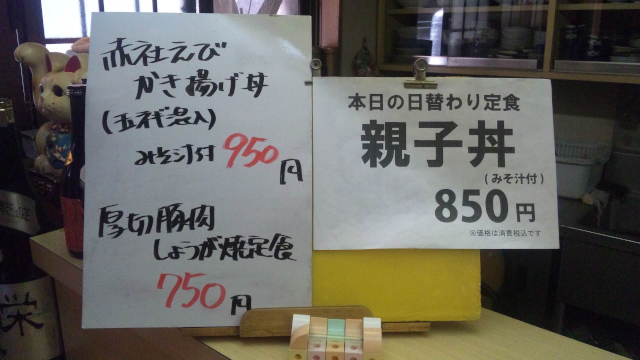 かき揚げ丼
みそ汁付 950円
厚切豚肉
しょうが焼定食
750円
本日の日替わり定食
親子丼
(みそ汁付)
850円
※価格は消費税込です
栄